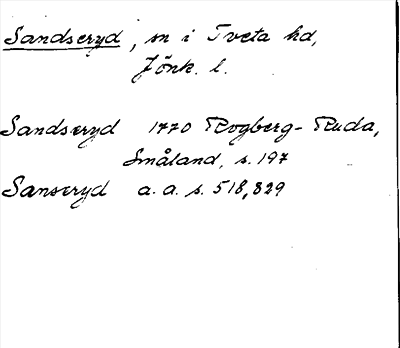 Sandseryd, sn i Tveta hd,
Jönk. l.
Sandseryd 1770 Rogberg-Ruda,
Småland, s. 197
Sanseryd a. a. s. 518, 829